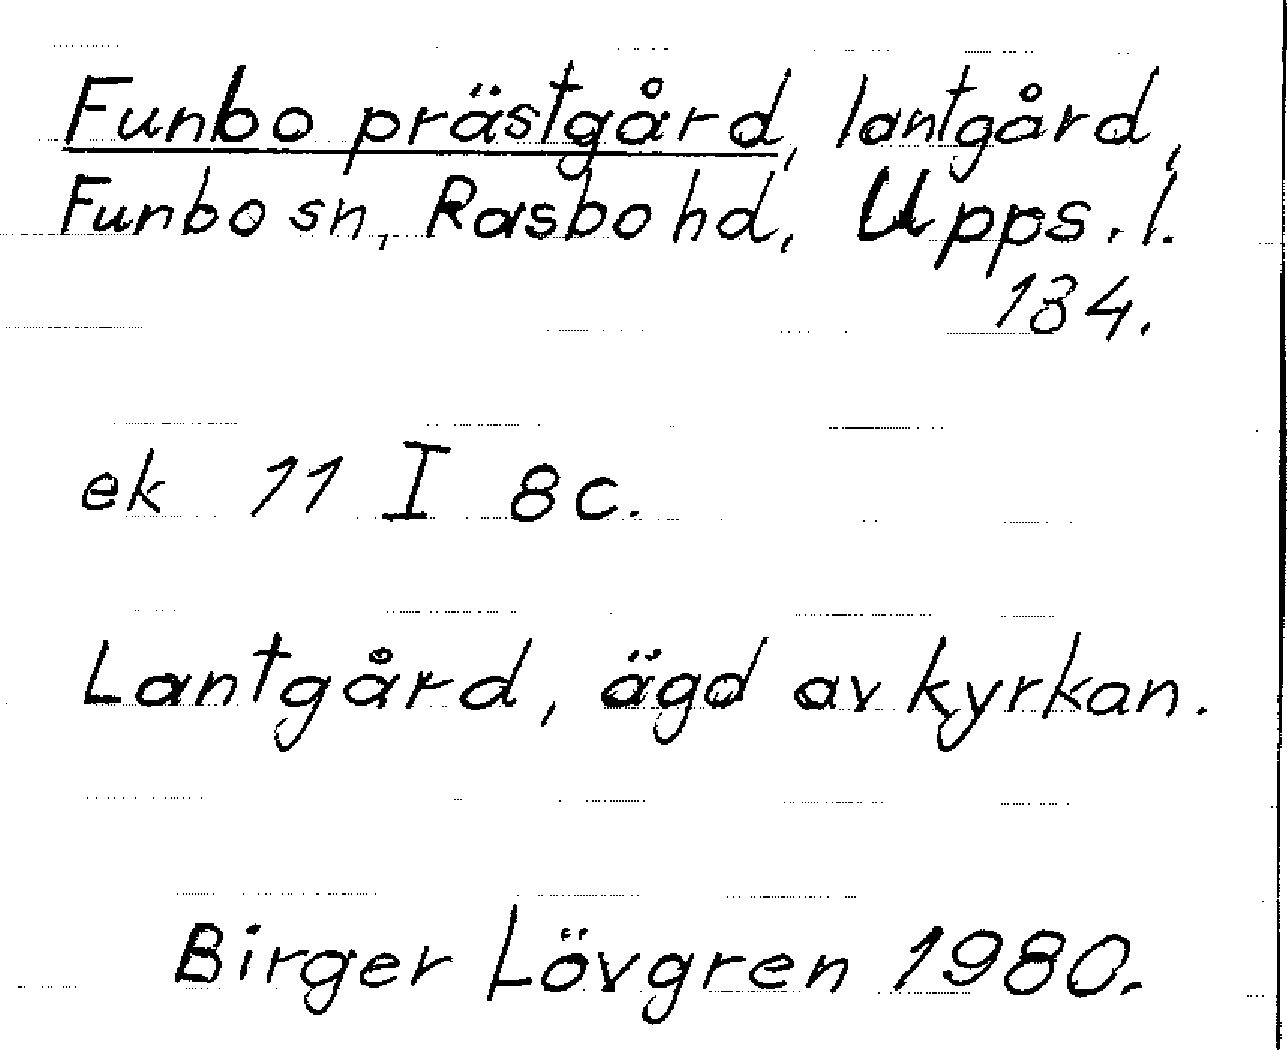 Funbo prästgård, lantgård,
Funbo sn, Rasbo hd, Upps. l.
134.
ek 11 I 8c.
Lantgård, ägd av kyrkan.
Birger Lövgren 1980.